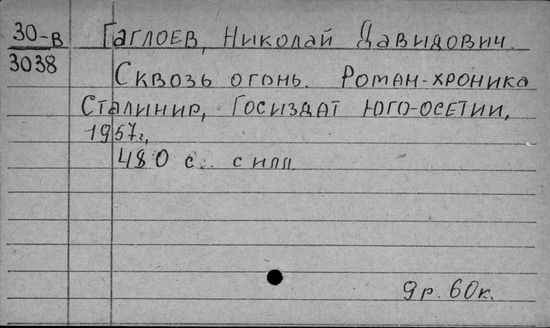 30-в Гаглоев, Николай Давидович.
3038
Сквозь огонь. Роман-хроника
Сталинир, Госиздат Юго-осетии,
1957г,
480 с. с илл.
9р. 60к.